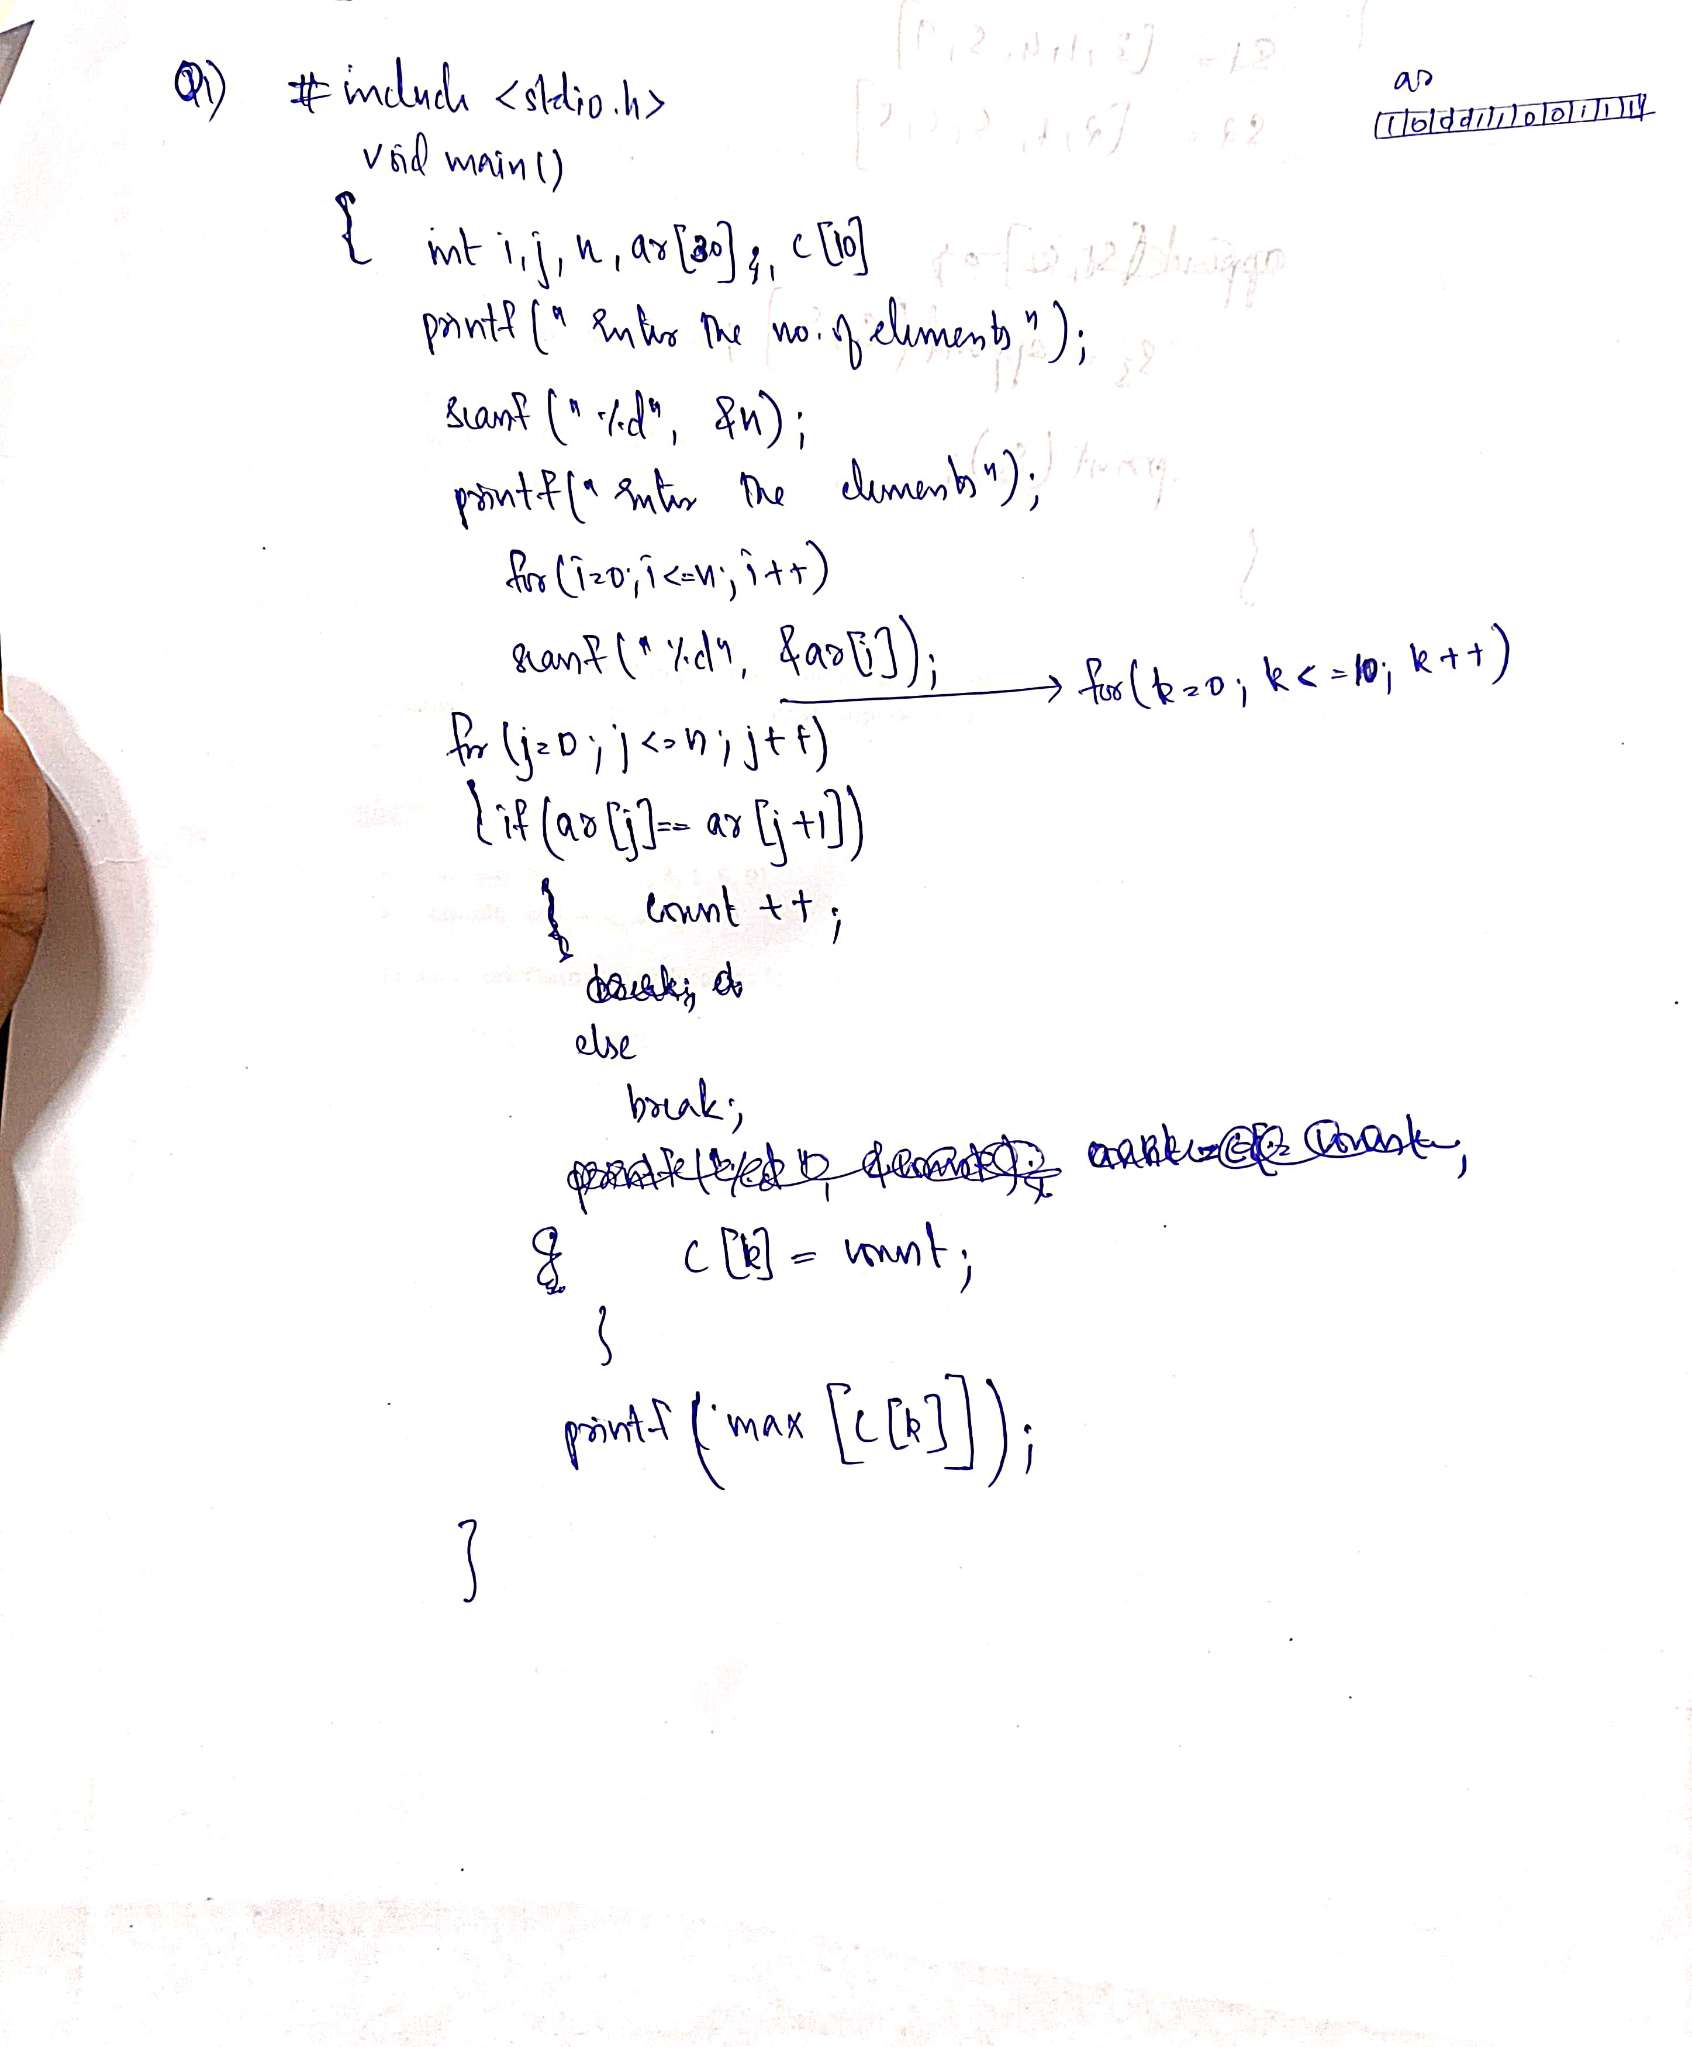 Q1) #include <stdio.h>
ar
void main()
{ int i, j, n, ar[30], c[10]
printf(" Enter the no. of elements");
scanf("%d", &n);
printf(" Enter the elements");
for(i=0; i<=n; i++)
scanf("%d", &ar[i]);
→ for(k=0; k<=10; k++)
for(j=0; j<=n; j++)
{ if(ar[j]== ar[j+1])
{ count ++;
else
break;
c[k] = count;
}
printf("max [c[k]]);
}